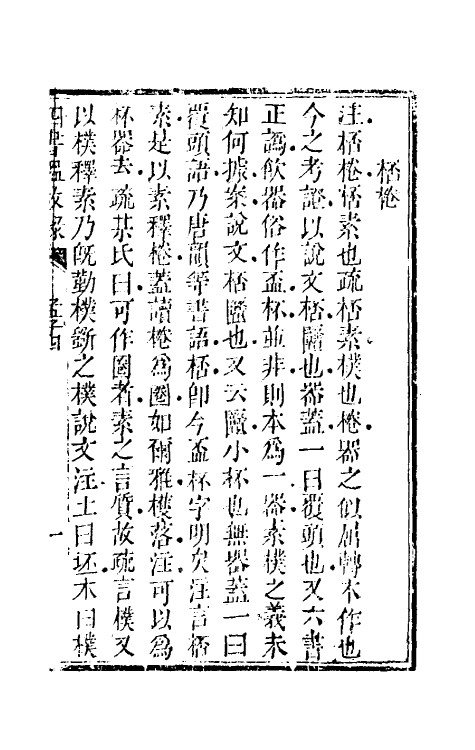 桮棬
注桮棬桮素也疏桮素樸也棬器之似屈轉木作也
今之考證以說文桮㔶也器蓋一曰覆頭也又六書
正譌飲器俗作盃杯並非則本爲一器素樸之義未
知何據案說文桮㔶也又云㔶小杯也無器蓋一曰
覆頭語乃唐韻等書語桮卽今盃杯字明矣注言桮
素是以素釋棬蓋讀棬爲圈如爾雅檴落注可以爲
杯器去疏某氏曰可作圈者素之言質故疏言樸又
以樸釋素乃旣勤樸斲之樸說文注土曰坯木曰樸
四書
孟子四
一